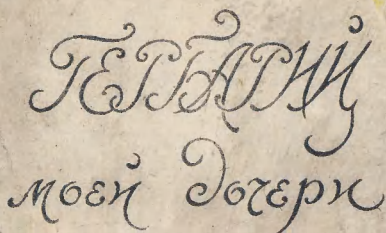 ГЕРБАРИЙ
моей дочери